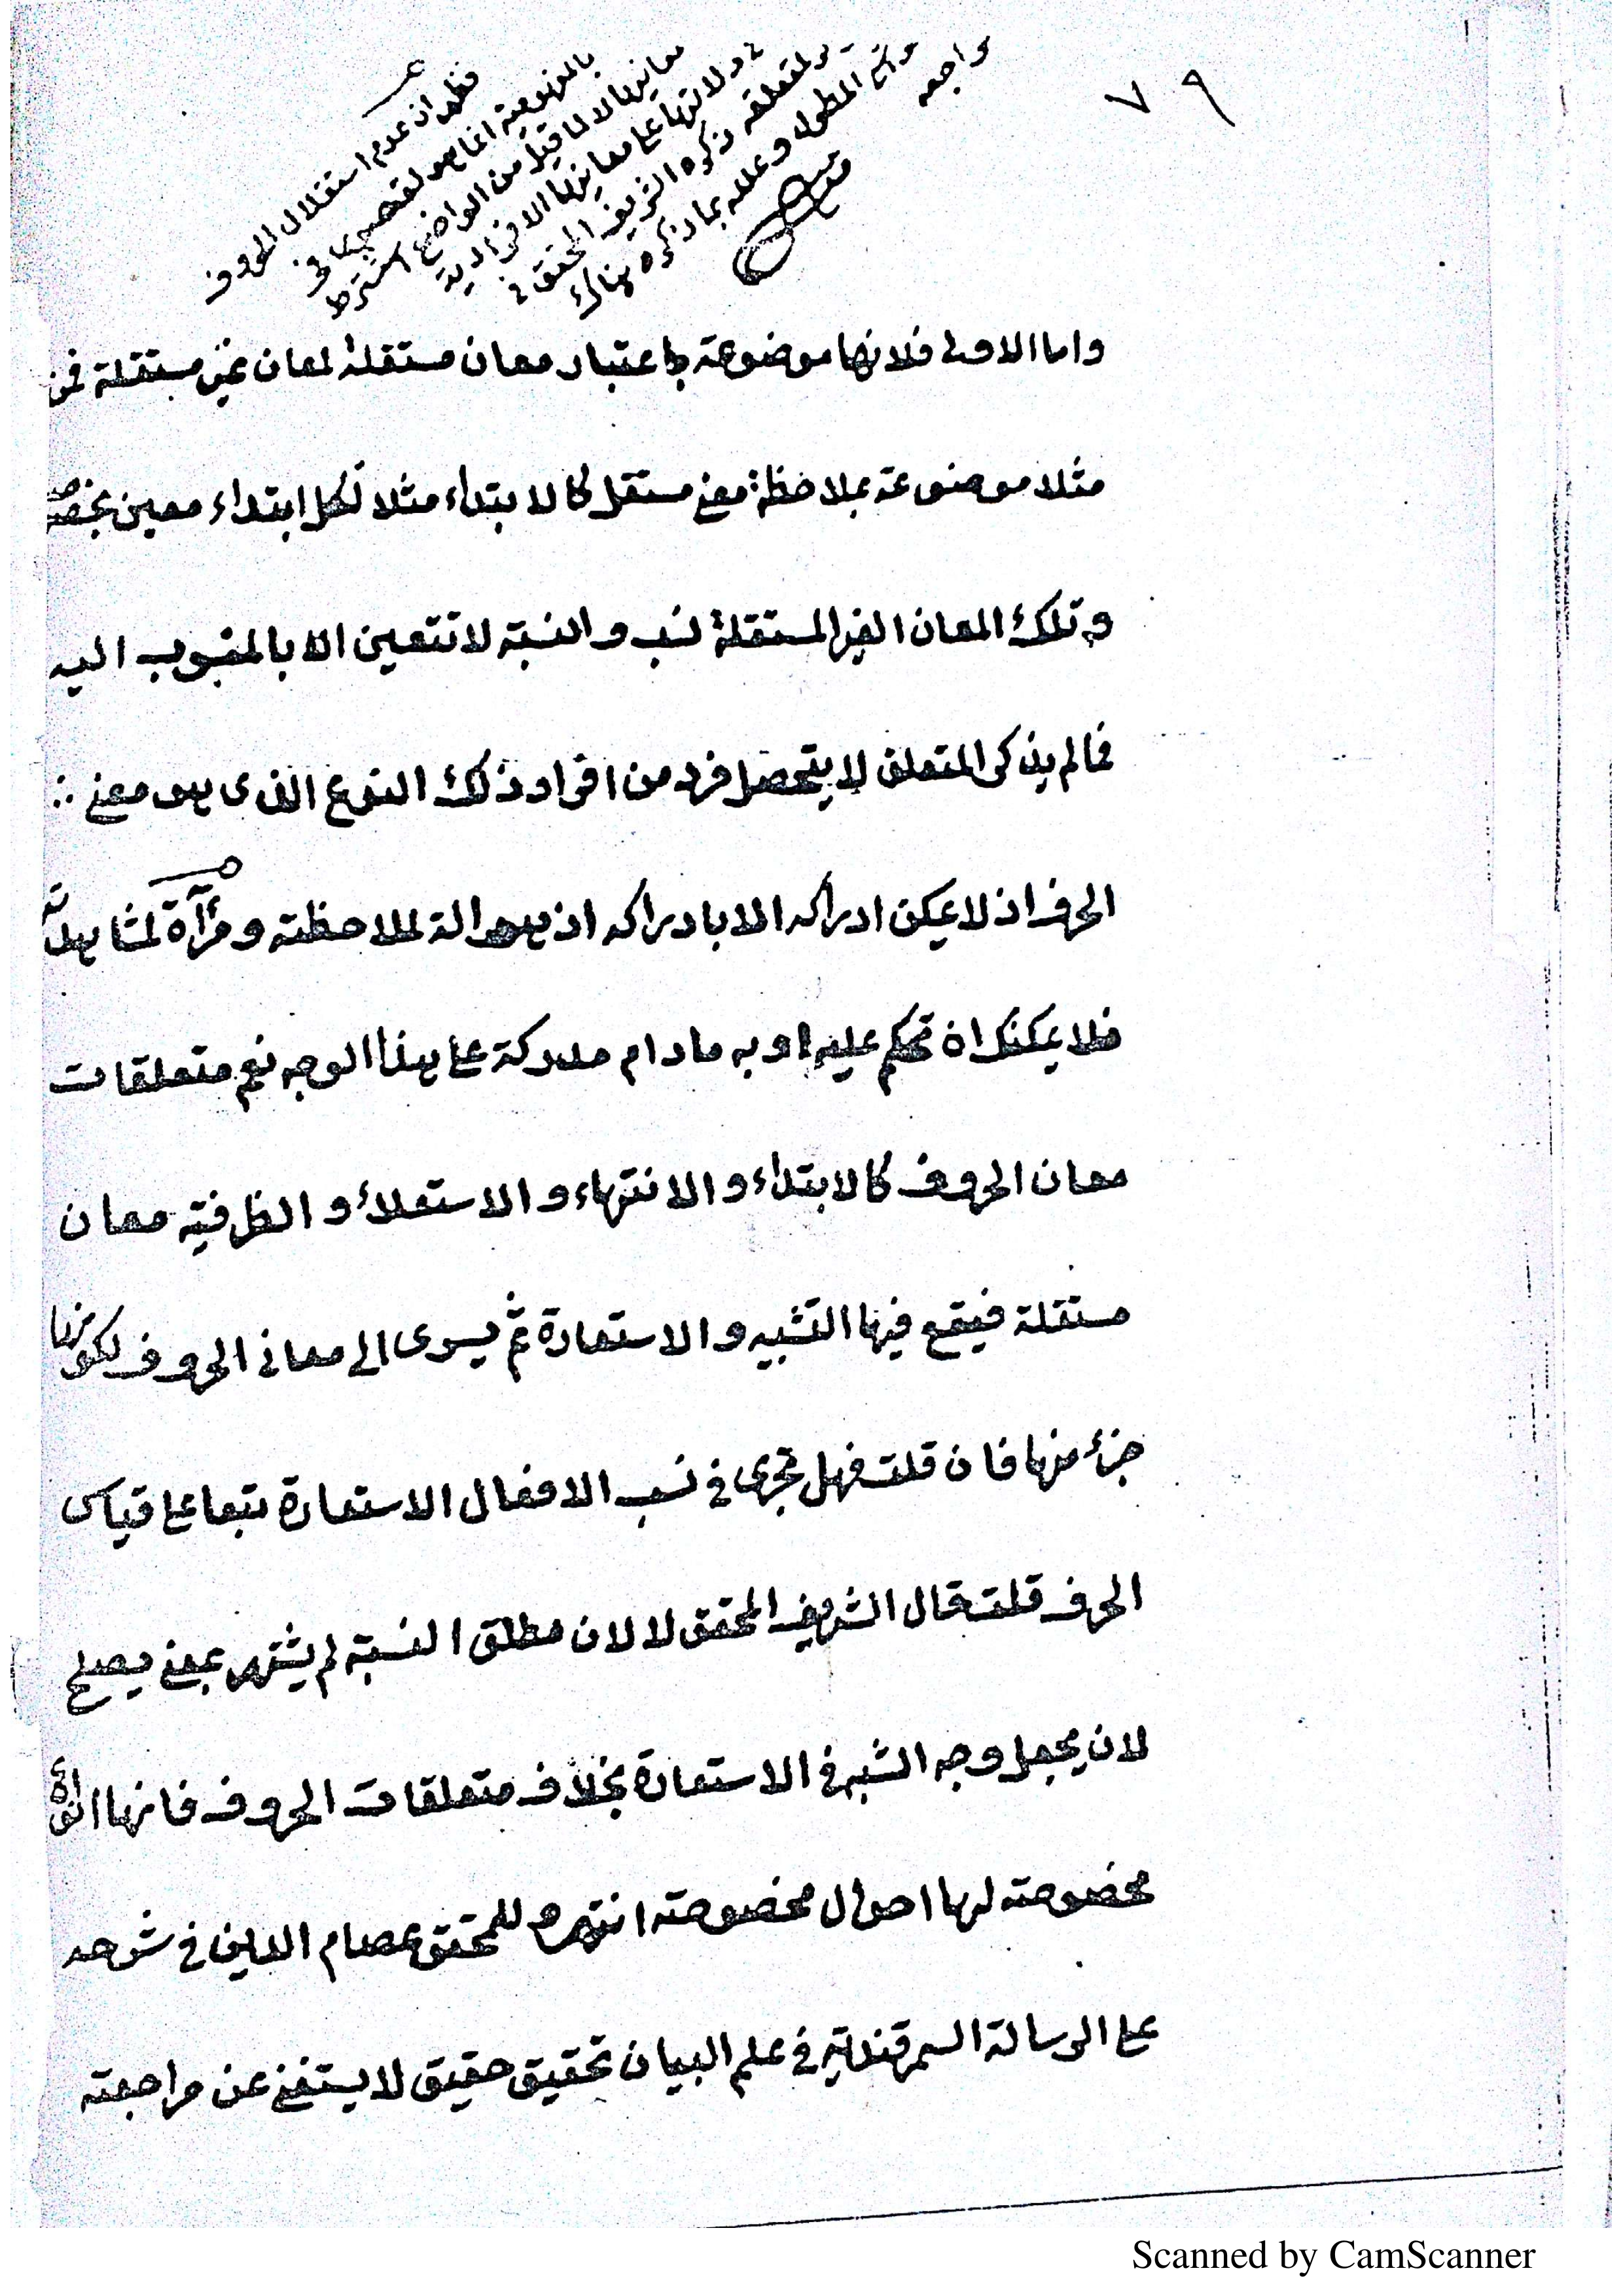 ٧٩
فظهر ان عدم استقلال الحروف
بالمفهومية انما هو لقصور في
معانيها لا لما قيل من الواضع اشترط
في دلالتها على معانيها الافرادية
ذكر متعلقه ذكره الشريف المحقق في
المطول وعلله بما ذكره هناك
راجعه
منه
واما الاولى فلانها موضوعة باعتبار معان مستقلة لمعان غير مستقلة فمن
مثلا موضوعة بملاحظة معنى مستقل كالابتداء مثلا لكل ابتداء معين بخصوصه
وتلك المعان الغير المستقلة نسب والنسبة لا تتعين الا بالمنسوب اليه
فما لم يذكر المتعلق لا يتحصل فرد من افراد ذلك النوع الذى هو معنى
الحرف اذ لا يمكن ادراكه الا بادراكه اذ هو الة لملاحظته ومرآة لمشاهدته
فلا يمكنك ان تحكم عليه او به ما دام مدركة على هذا الوجه نعم متعلقات
معان الحروف كالابتداء والانتهاء والاستعلاء والظرفية معان
مستقلة فيقع فيها التشبيه والاستعارة ثم يسرى الى معانى الحروف لكونها
جزء منها فان قلت فهل تجرى فى نسب الافعال الاستعارة تبعا على قياس
الحرف قلت قال الشريف المحقق لا لان مطلق النسبة لم يشتهر بمعنى يصلح
لان يجعل وجه الشبه فى الاستعارة بخلاف متعلقات الحروف فانها انواع
مخصوصة لها احوال مخصوصة انتهى وللمحقق عصام الدين فى شرحه
على الرسالة السمرقندية فى علم البيان تحقيق حقيق لا يستغنى عن مراجعته
Scanned by CamScanner